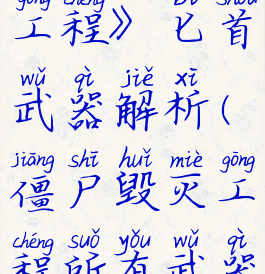 gōng chéng bǐ shǒu
工程》 匕首
wǔ qì jiě xī
武器解析(
jiāng shī huǐ miè gōng
僵尸毁灭工
chéng suǒ yǒu wǔ qì
程所有武器